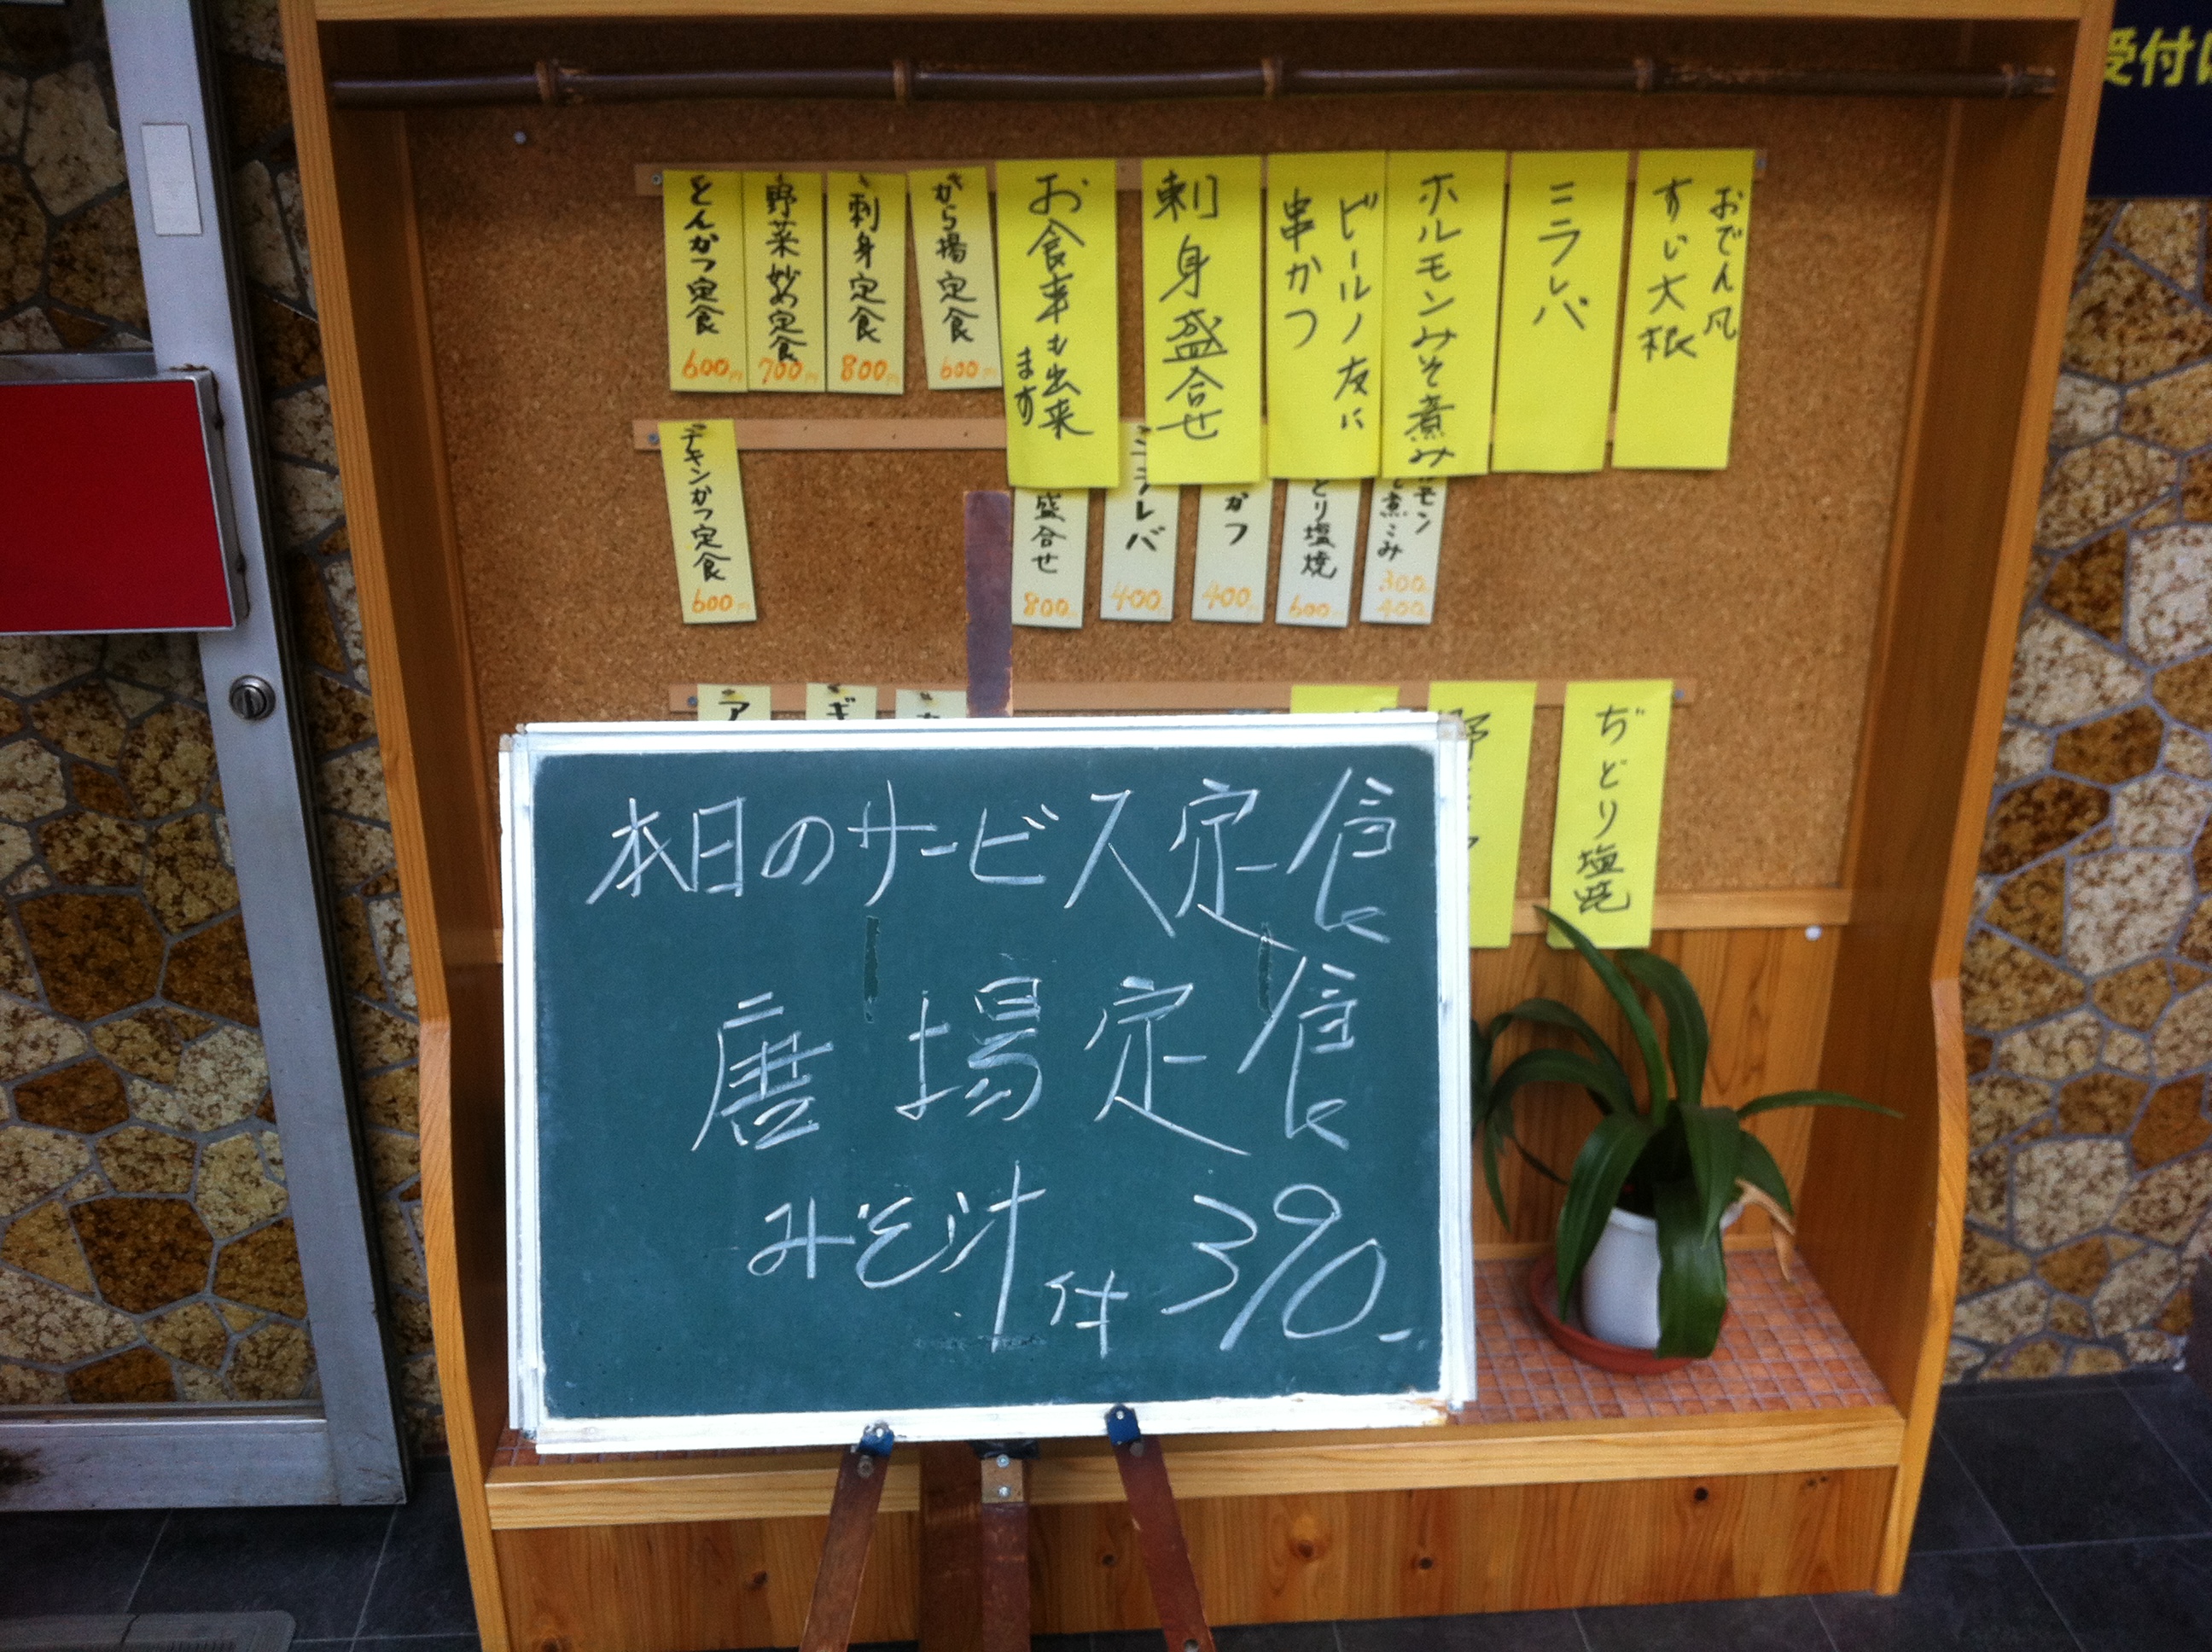 とんかつ定食
600円
野菜炒め定食
700円
刺身定食
800円
から揚定食
600円
お食事も出来
ます
刺身盛合せ
ビールノ友に
串かつ
ホルモンみそ煮み
ミラレバ
おでん凡
すじ大根
チキンかつ定食
600円
盛合せ
800
レバ
400
かつ
400
どり塩焼
600
モン
煮こみ
300
400
ア
ギ
野
ぢどり塩焼
本日のサービス定食
唐揚定食
みそ汁付 390-
受付